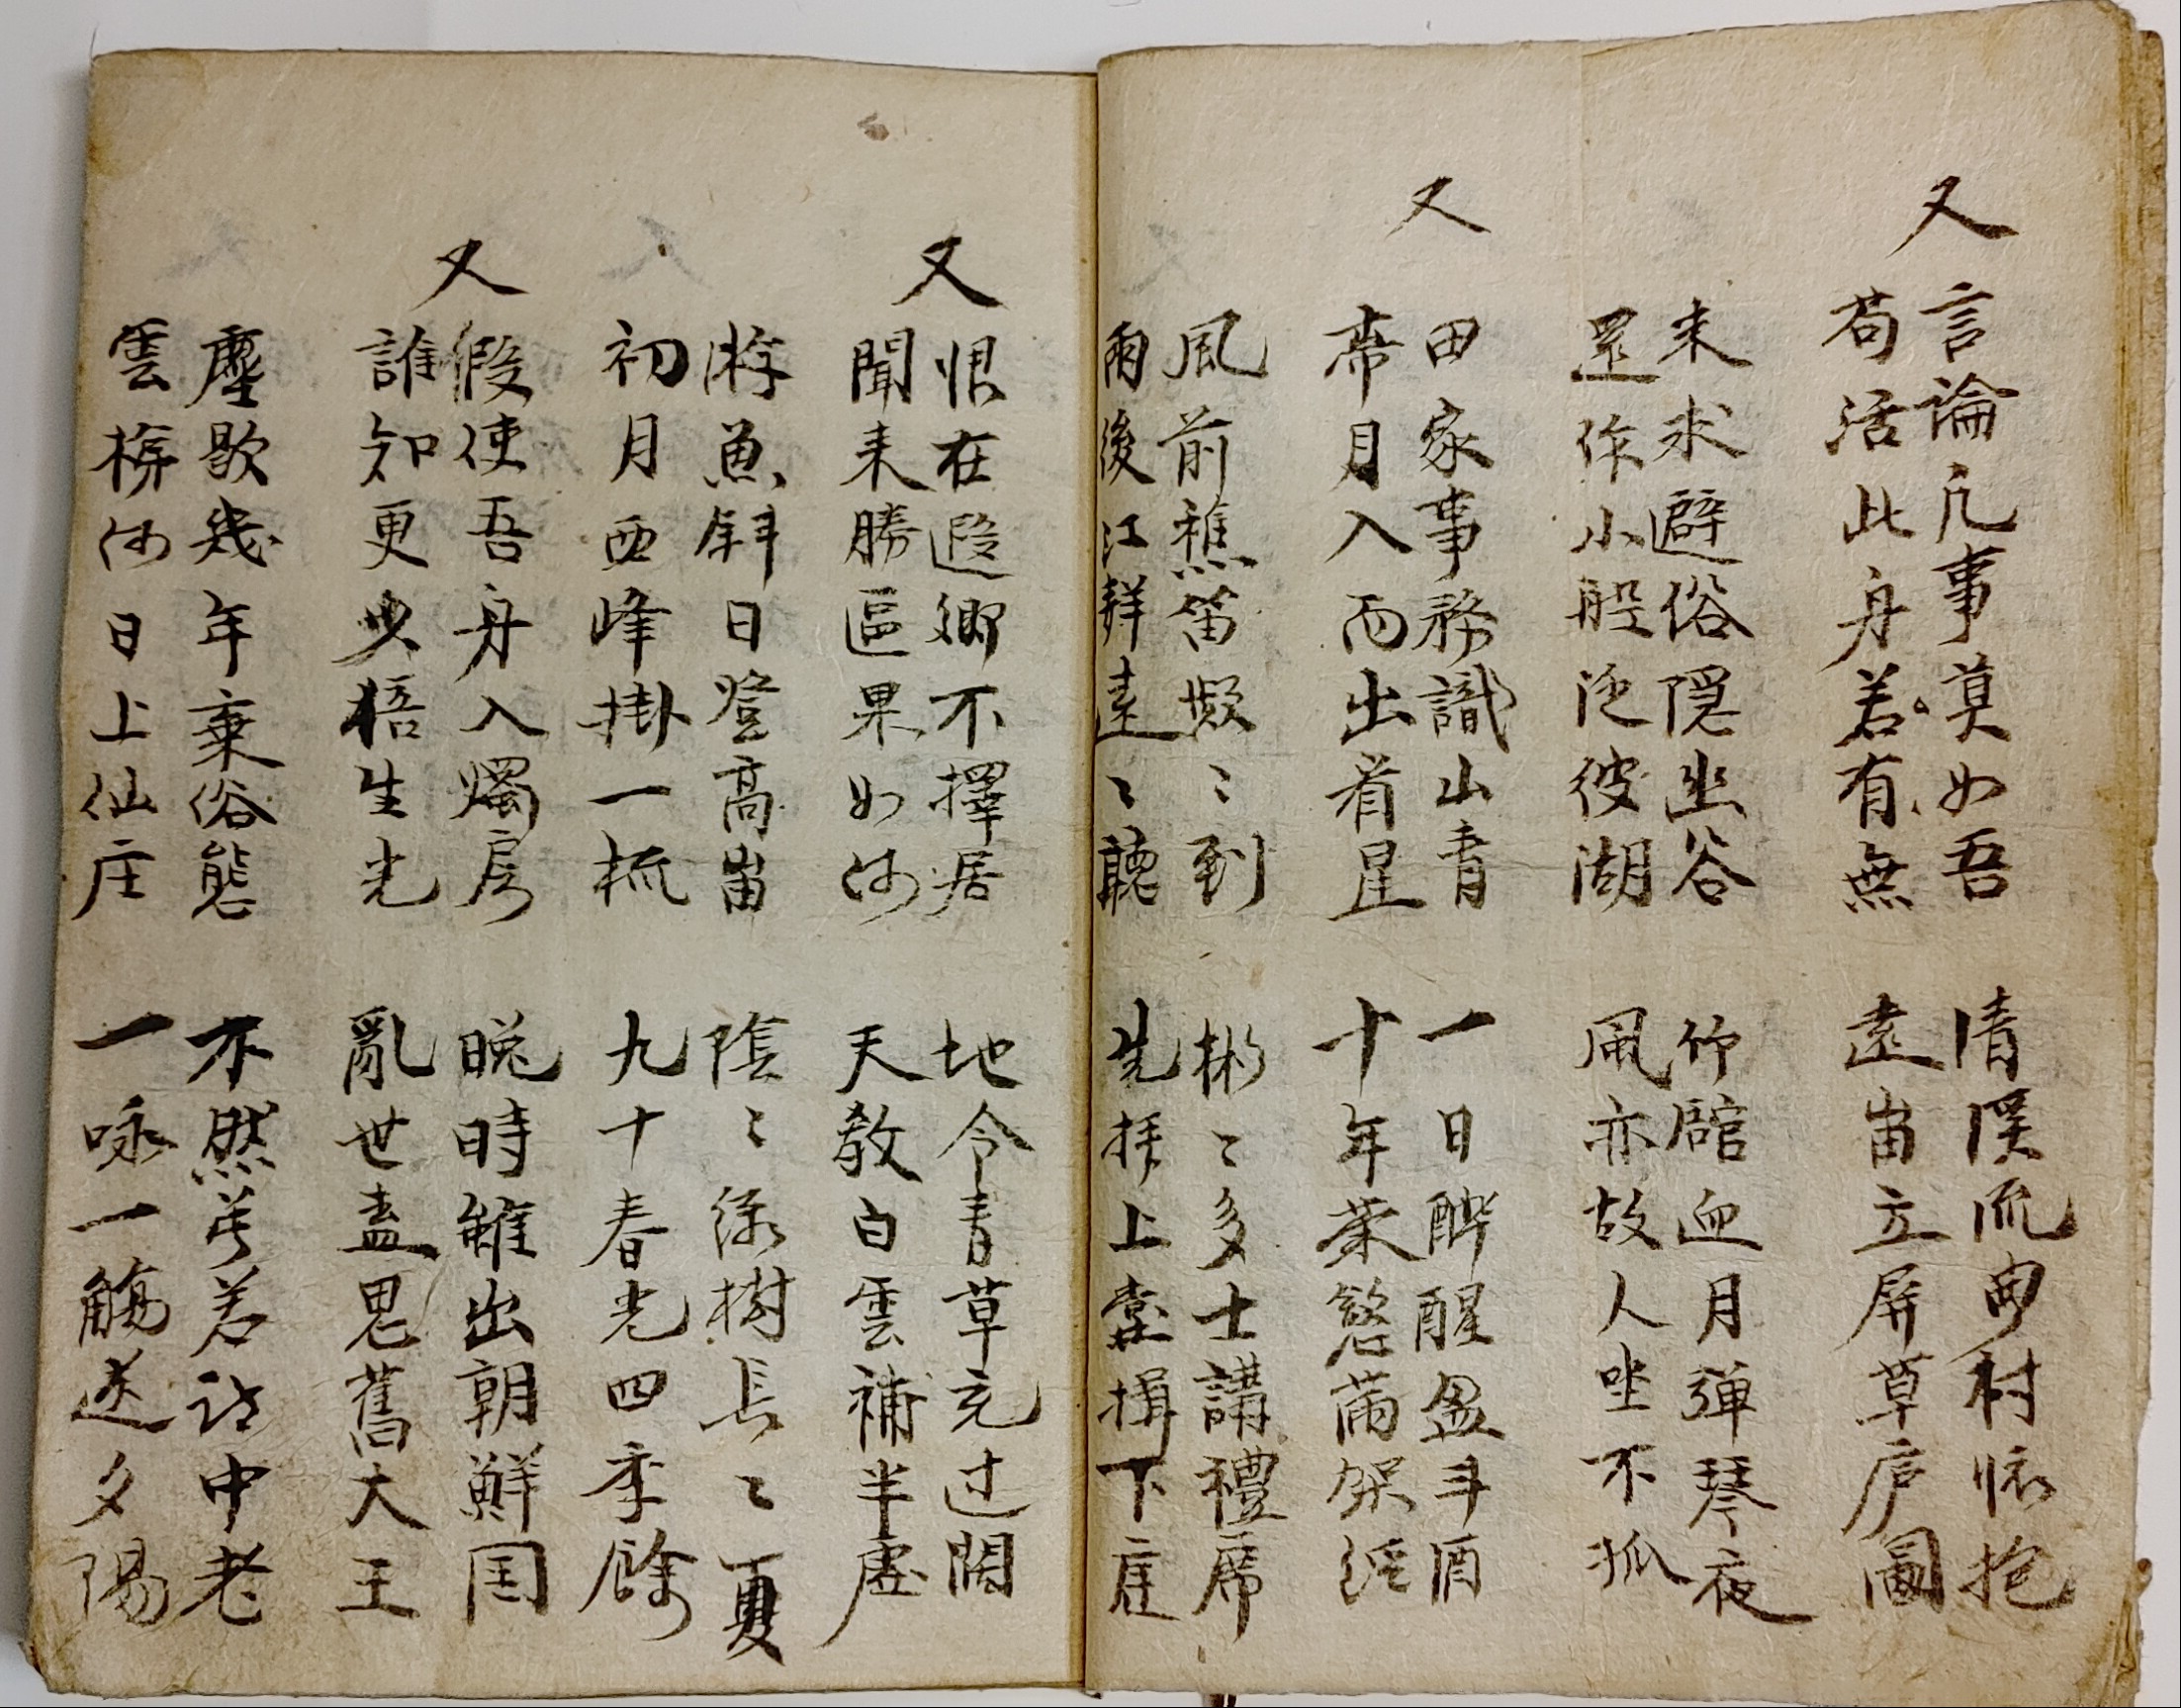 又
言論凡事莫如吾 清溪流曲村恢抱
苟活此舟若有無 遠峀立屏草庐圖
来求避俗隠幽谷 竹舘血月弾琴夜
還作小舩泛彼湖 風亦故人坐不孤
又
田家事務識山青 一日醉醒盈斗酒
帶月入而出看星 十年榮慾萬架経
風前樵笛掀〻到 彬〻多士講禮席
雨後江鮮遠〻聽 先拝上堂揖下庭
又
恨在遐鄉不擇居 地令青草充过闊
聞来勝區果如何 天教白雲補半虚
游魚斜日登高峀 陰〻绿樹長〻夏
初月西峰掛一梳 九十春光四季餘
又
假使吾舟入燭房 晚時雖出朝鮮国
誰知更與梧生光 亂世盍思舊大王
塵歇幾年棄俗態 不然兮若访中老
雲梯何日上仙庄 一咏一觴送夕陽